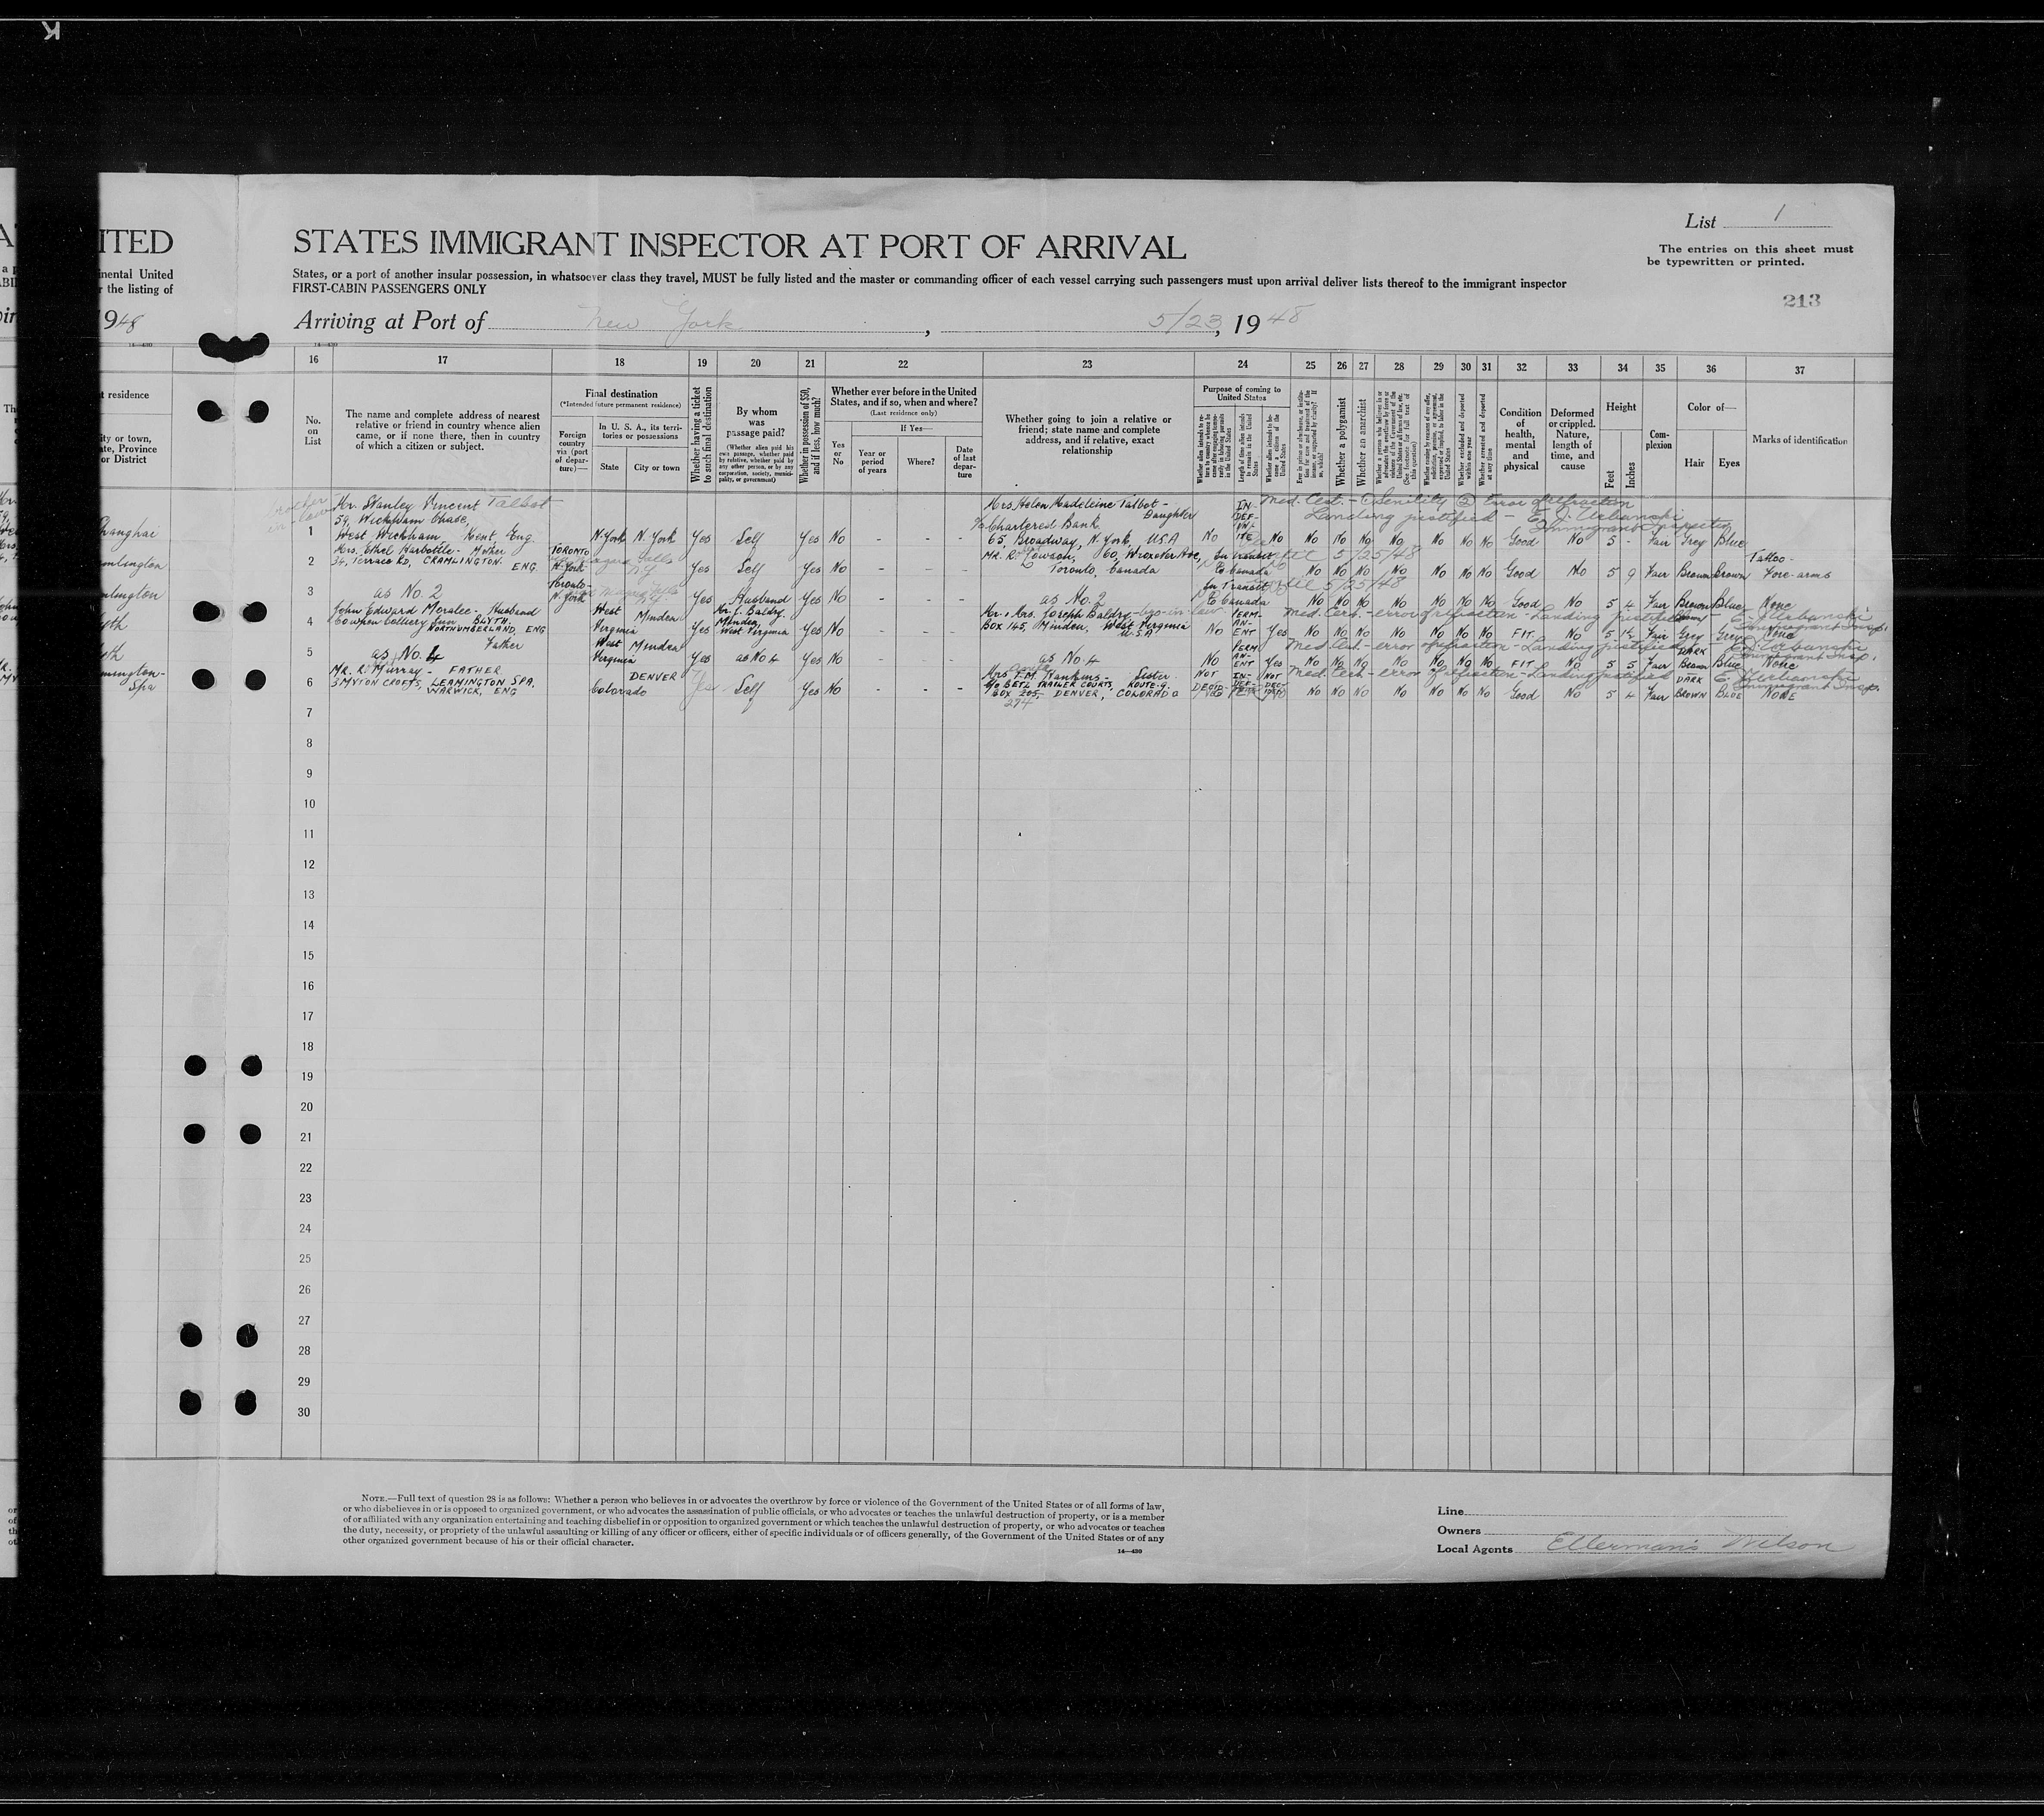 K
ITED
inental United
r the listing of
1948
14—430
t residence
ity or town,
te, Province
or District
Shanghai
Spa
STATES IMMIGRANT INSPECTOR AT PORT OF ARRIVAL
List 1
The entries on this sheet must
be typewritten or printed.
213
States, or a port of another insular possession, in whatsoever class they travel, MUST be fully listed and the master or commanding officer of each vessel carrying such passengers must upon arrival deliver lists thereof to the immigrant inspector
FIRST-CABIN PASSENGERS ONLY
Arriving at Port of New York, 5/23, 1948
14—430
16 17 18 19 20 21 22 23 24 25 26 27 28 29 30 31 32 33 34 35 36 37
No.
on
List
The name and complete address of nearest
relative or friend in country whence alien
came, or if none there, then in country
of which a citizen or subject.
Final destination
(*Intended future permanent residence)
Foreign
country
via (port
of depar-
ture)—
In U. S. A., its terri-
tories or possessions
State
City or town
Whether having a ticket
to such final destination
By whom
was
passage paid?
(Whether alien paid his
own passage, whether paid
by relative, whether paid by
any other person, or by any
corporation, society, munici-
pality, or government)
Whether in possession of $50,
and if less, how much?
Whether ever before in the United
States, and if so, when and where?
(Last residence only)
Yes
or
No
If Yes—
Year or
period
of years
Where?
Date
of last
depar-
ture
Whether going to join a relative or
friend; state name and complete
address, and if relative, exact
relationship
Purpose of coming to
United States
Length of time alien intends
to remain in the United
States
Whether a polygamist
Whether an anarchist
Whether arrested and deported
at any time
Condition
of
health,
mental
and
physical
Deformed
or crippled.
Nature,
length of
time, and
cause
Height
Feet
Inches
Com-
plexion
Color of—
Hair
Eyes
Marks of identification
1
Mr. Stanley Vincent Talbot
59, Wickham Chase,
West Wickham, Kent, Eng.
N. York N. York Yes Self Yes No - - -
Mrs Helen Madeleine Talbot -
Daughter
c/o Chartered Bank
65, Broadway, N. York, U.S.A
No IN-DEF-IN-ITE No No No No No No No No Good No 5 - Fair Grey Blue
Med. Cert. - ① Senility ② Error of refraction
Landing justified - E. J. Urbanski
Immigrant Inspector
2
Mrs. Ethel Harbottle - Mother
34, Terrace RD, CRAMLINGTON. ENG
TORONTO
N. York Yes Self Yes No - - -
60, Wroxeter Ave,
Toronto, Canada
In transit
to Canada
until 5/25/48
No No No No No No No Good No 5 9 Fair Brown Brown
Tattoo -
Fore-arms
3
as No. 2
Toronto -
N. York Yes Husband Yes No - - -
as No. 2
In Transit
to Canada
until 5/25/48
No No No No No No No Good No 5 4 Fair Brown Blue None
4
John Edward Moralee - Husband
Cowpen Colliery Inn BLYTH.
NORTHUMBERLAND, ENG
West
Virginia Minden Yes
Minden,
West Virginia Yes No - - -
Mr. & Mrs. Joseph Baldry
Box 145, Minden, West Virginia
U.S.A
No PERM-AN-ENT Yes No No No No No No No FIT. No 5 1½ Fair Grey Grey None
Med. Cert. - error of refraction - Landing justified
E. J. Urbanski
Immigrant Insp.
5
as No. 4 Father
West
Virginia Minden Yes as No 4 Yes No - - -
as No. 4
No PERM-AN-ENT Yes No No No No No No No FIT No 5 5 Fair DARK Brown Blue None
Med. Cert. - error of refraction - Landing justified
E. J. Urbanski
Immigrant Insp.
6
MR. R. Murray - FATHER
3 MYTON CROFTS, LEAMINGTON SPA.
WARWICK, ENG
Colorado DENVER Yes Self Yes No - - -
Mrs F.M. Hankins - Sister
TRAILER COURTS, ROUTE-9.
BOX 205, DENVER, COLORADO
274
NOT DECID-ED
No No No No No No No Good No 5 4 Fair DARK BROWN BLUE NONE
Med. Cert. - error of refraction - Landing justified
E. J. Urbanski
Immigrant Insp.
7
8
9
10
11
12
13
14
15
16
17
18
19
20
21
22
23
24
25
26
27
28
29
30
NOTE.—Full text of question 28 is as follows: Whether a person who believes in or advocates the overthrow by force or violence of the Government of the United States or of all forms of law,
or who disbelieves in or is opposed to organized government, or who advocates the assassination of public officials, or who advocates or teaches the unlawful destruction of property, or is a member
of or affiliated with any organization entertaining and teaching disbelief in or opposition to organized government or which teaches the unlawful destruction of property, or who advocates or teaches
the duty, necessity, or propriety of the unlawful assaulting or killing of any officer or officers, either of specific individuals or of officers generally, of the Government of the United States or of any
other organized government because of his or their official character.
14—430
Line
Owners
Local Agents Ellerman's Wilson